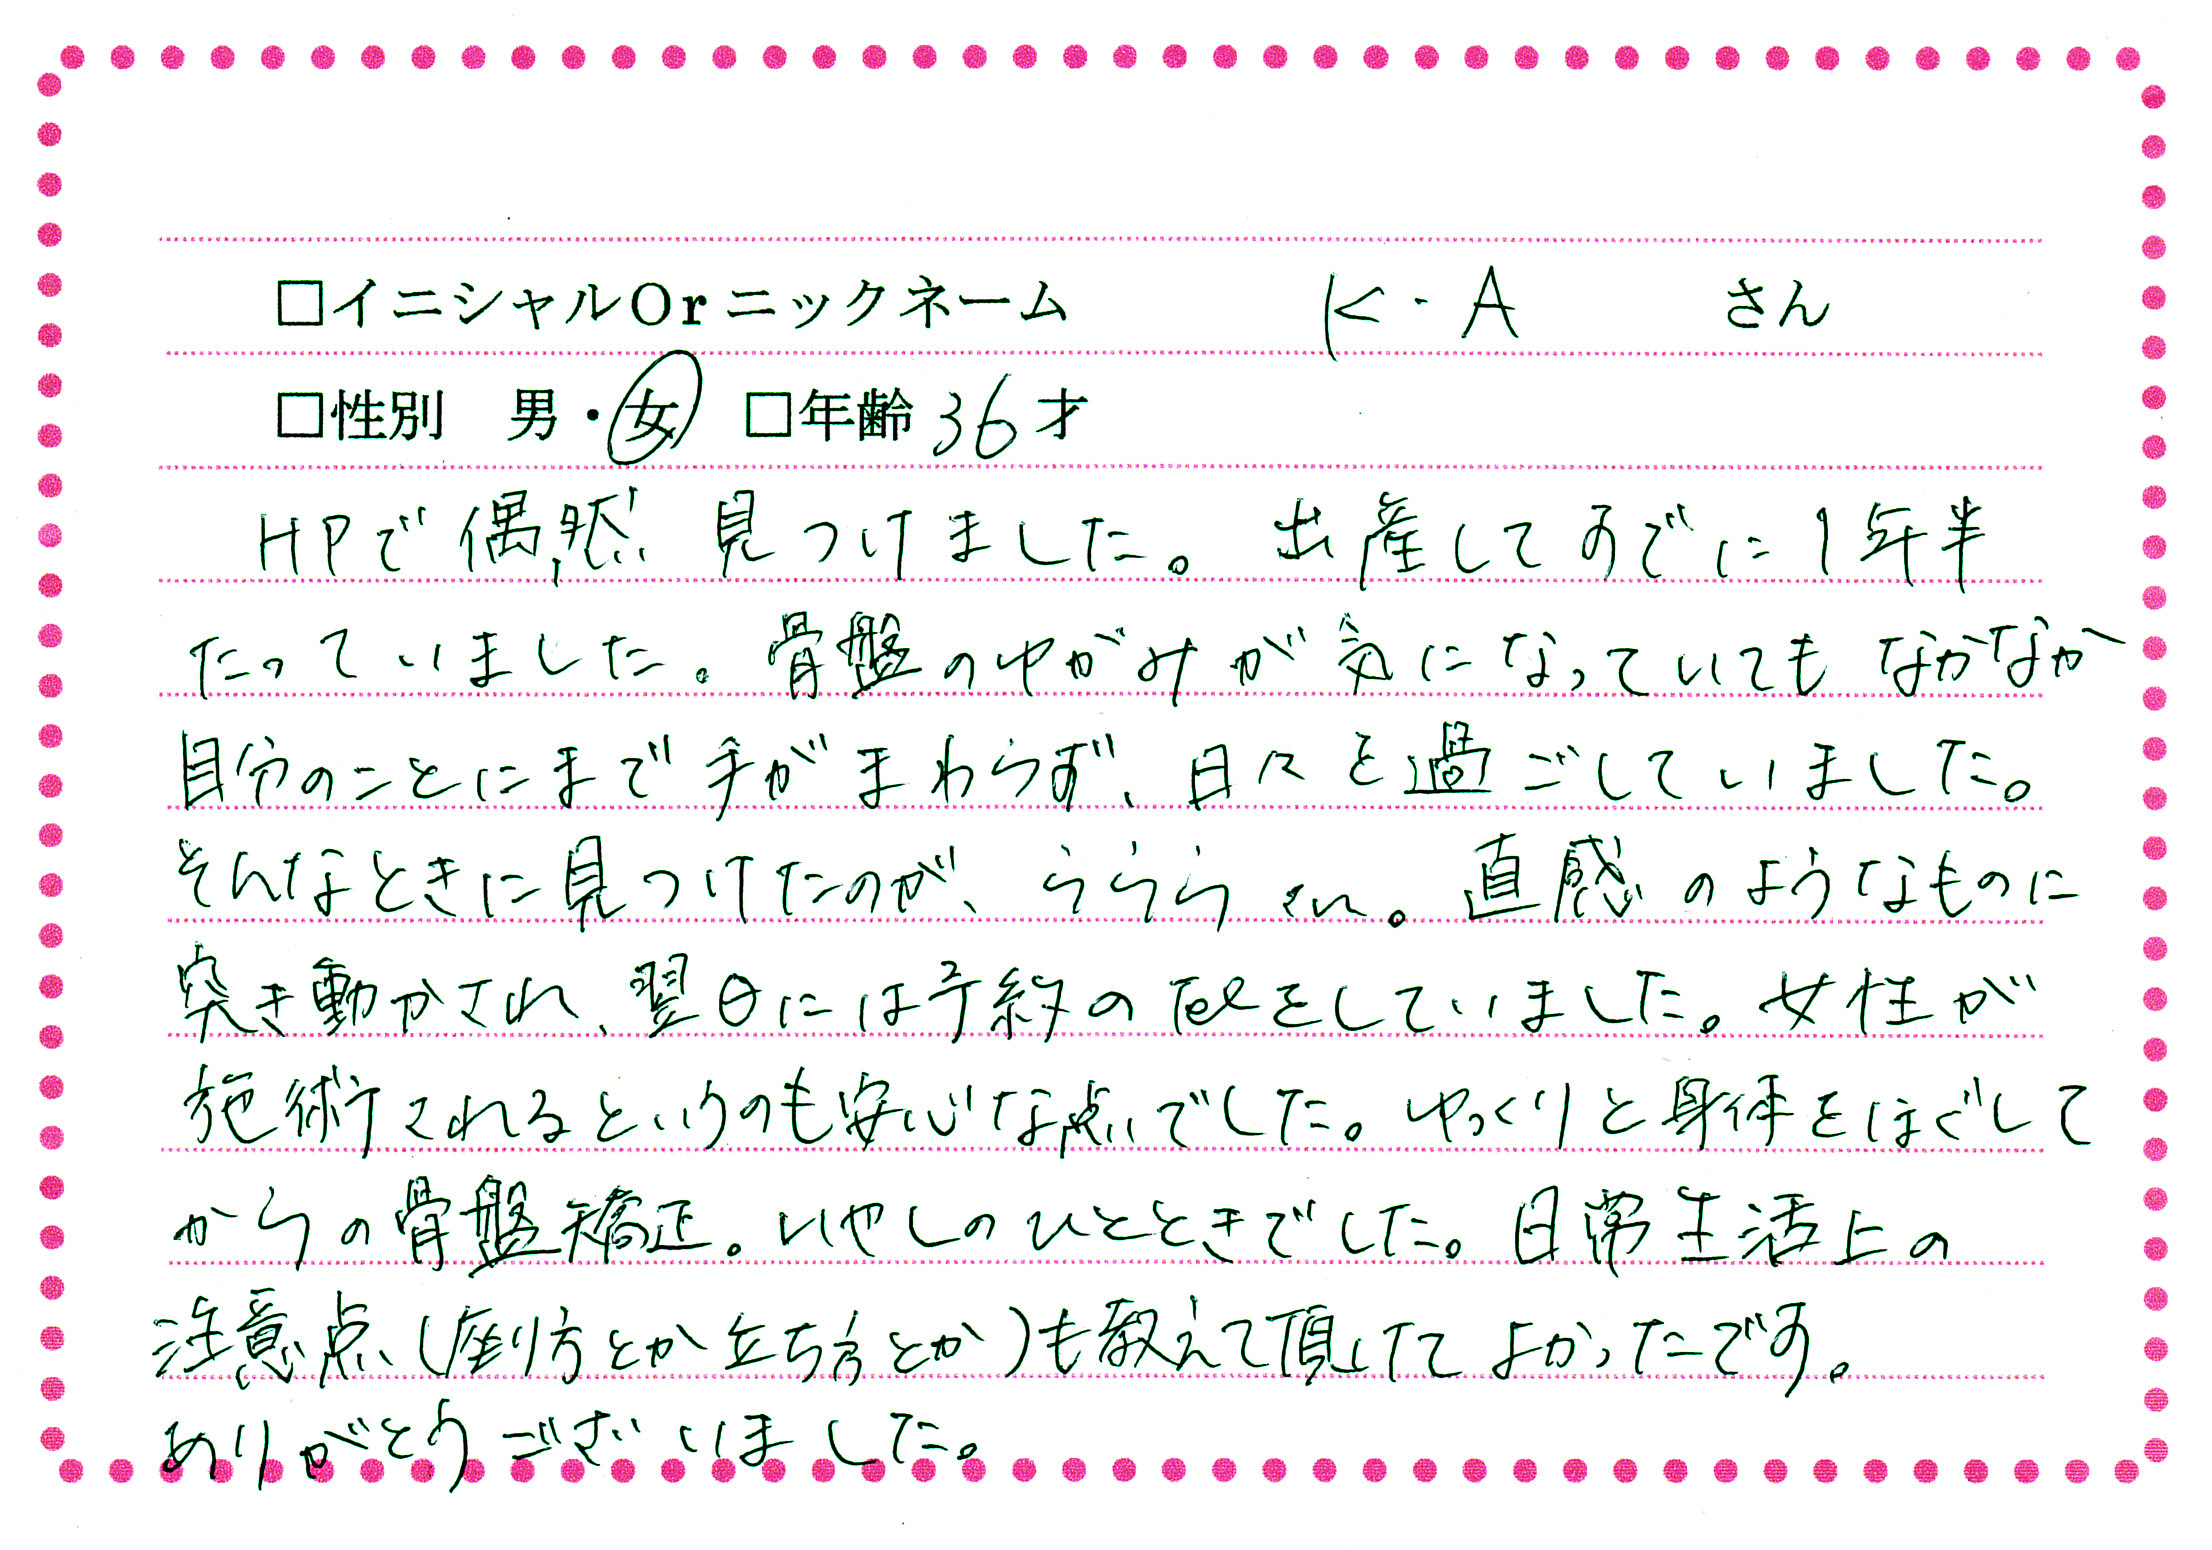 □イニシャルOrニックネーム K・A さん
□性別 男・女 □年齢 36才
HPで偶然見つけました。出産してすでに1年半
たっていました。骨盤のゆがみが気になっていてもなかなか
自分のことにまで手がまわらず、日々を過ごしていました。
そんなときに見つけたのが、うららさん。直感のようなものに
突き動かされ、翌日には予約のTelをしていました。女性が
施術されるというのも安心な点でした。ゆっくりと身体をほぐして
からの骨盤矯正。いやしのひとときでした。日常生活上の
注意点(座り方とか立ち方とか)も教えて頂けてよかったです。
ありがとうございました。